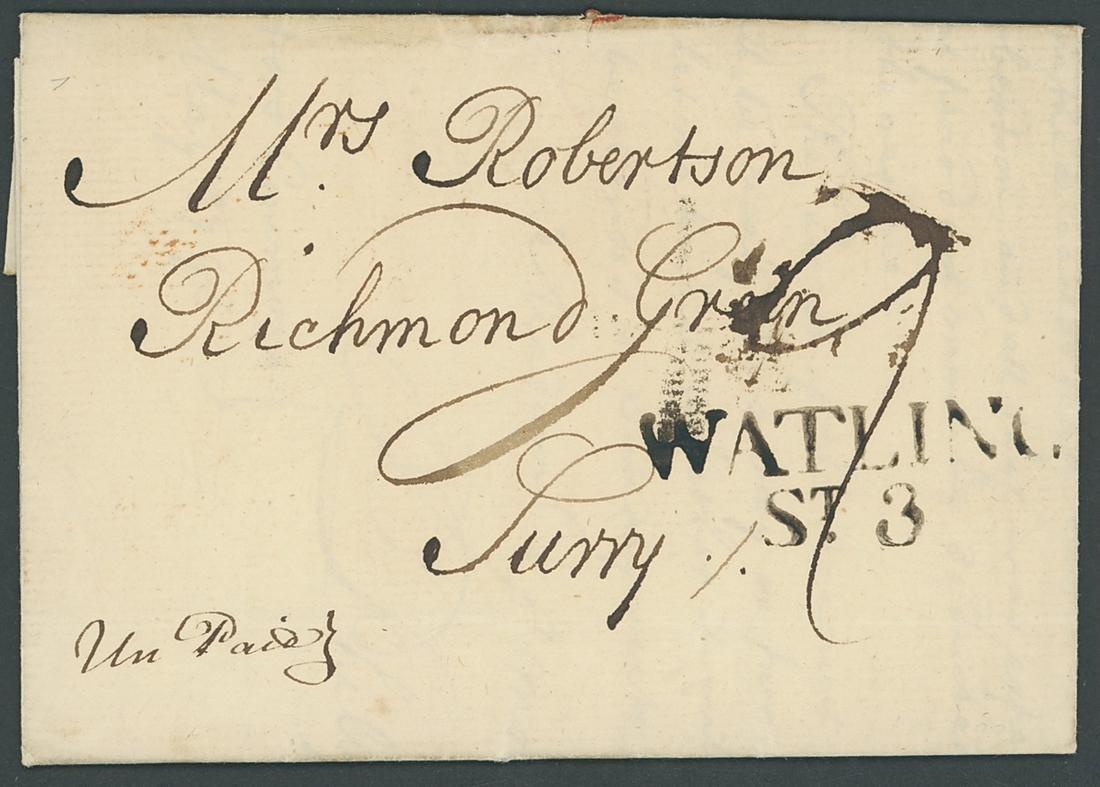 Mrs. Robertson
Richmond Green
Surry /.
WATLING
ST. 3
Un Paid